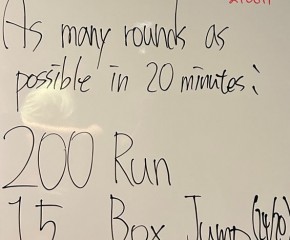 As many rounds as
possible in 20 minutes:
200 Run
15 Box Jump